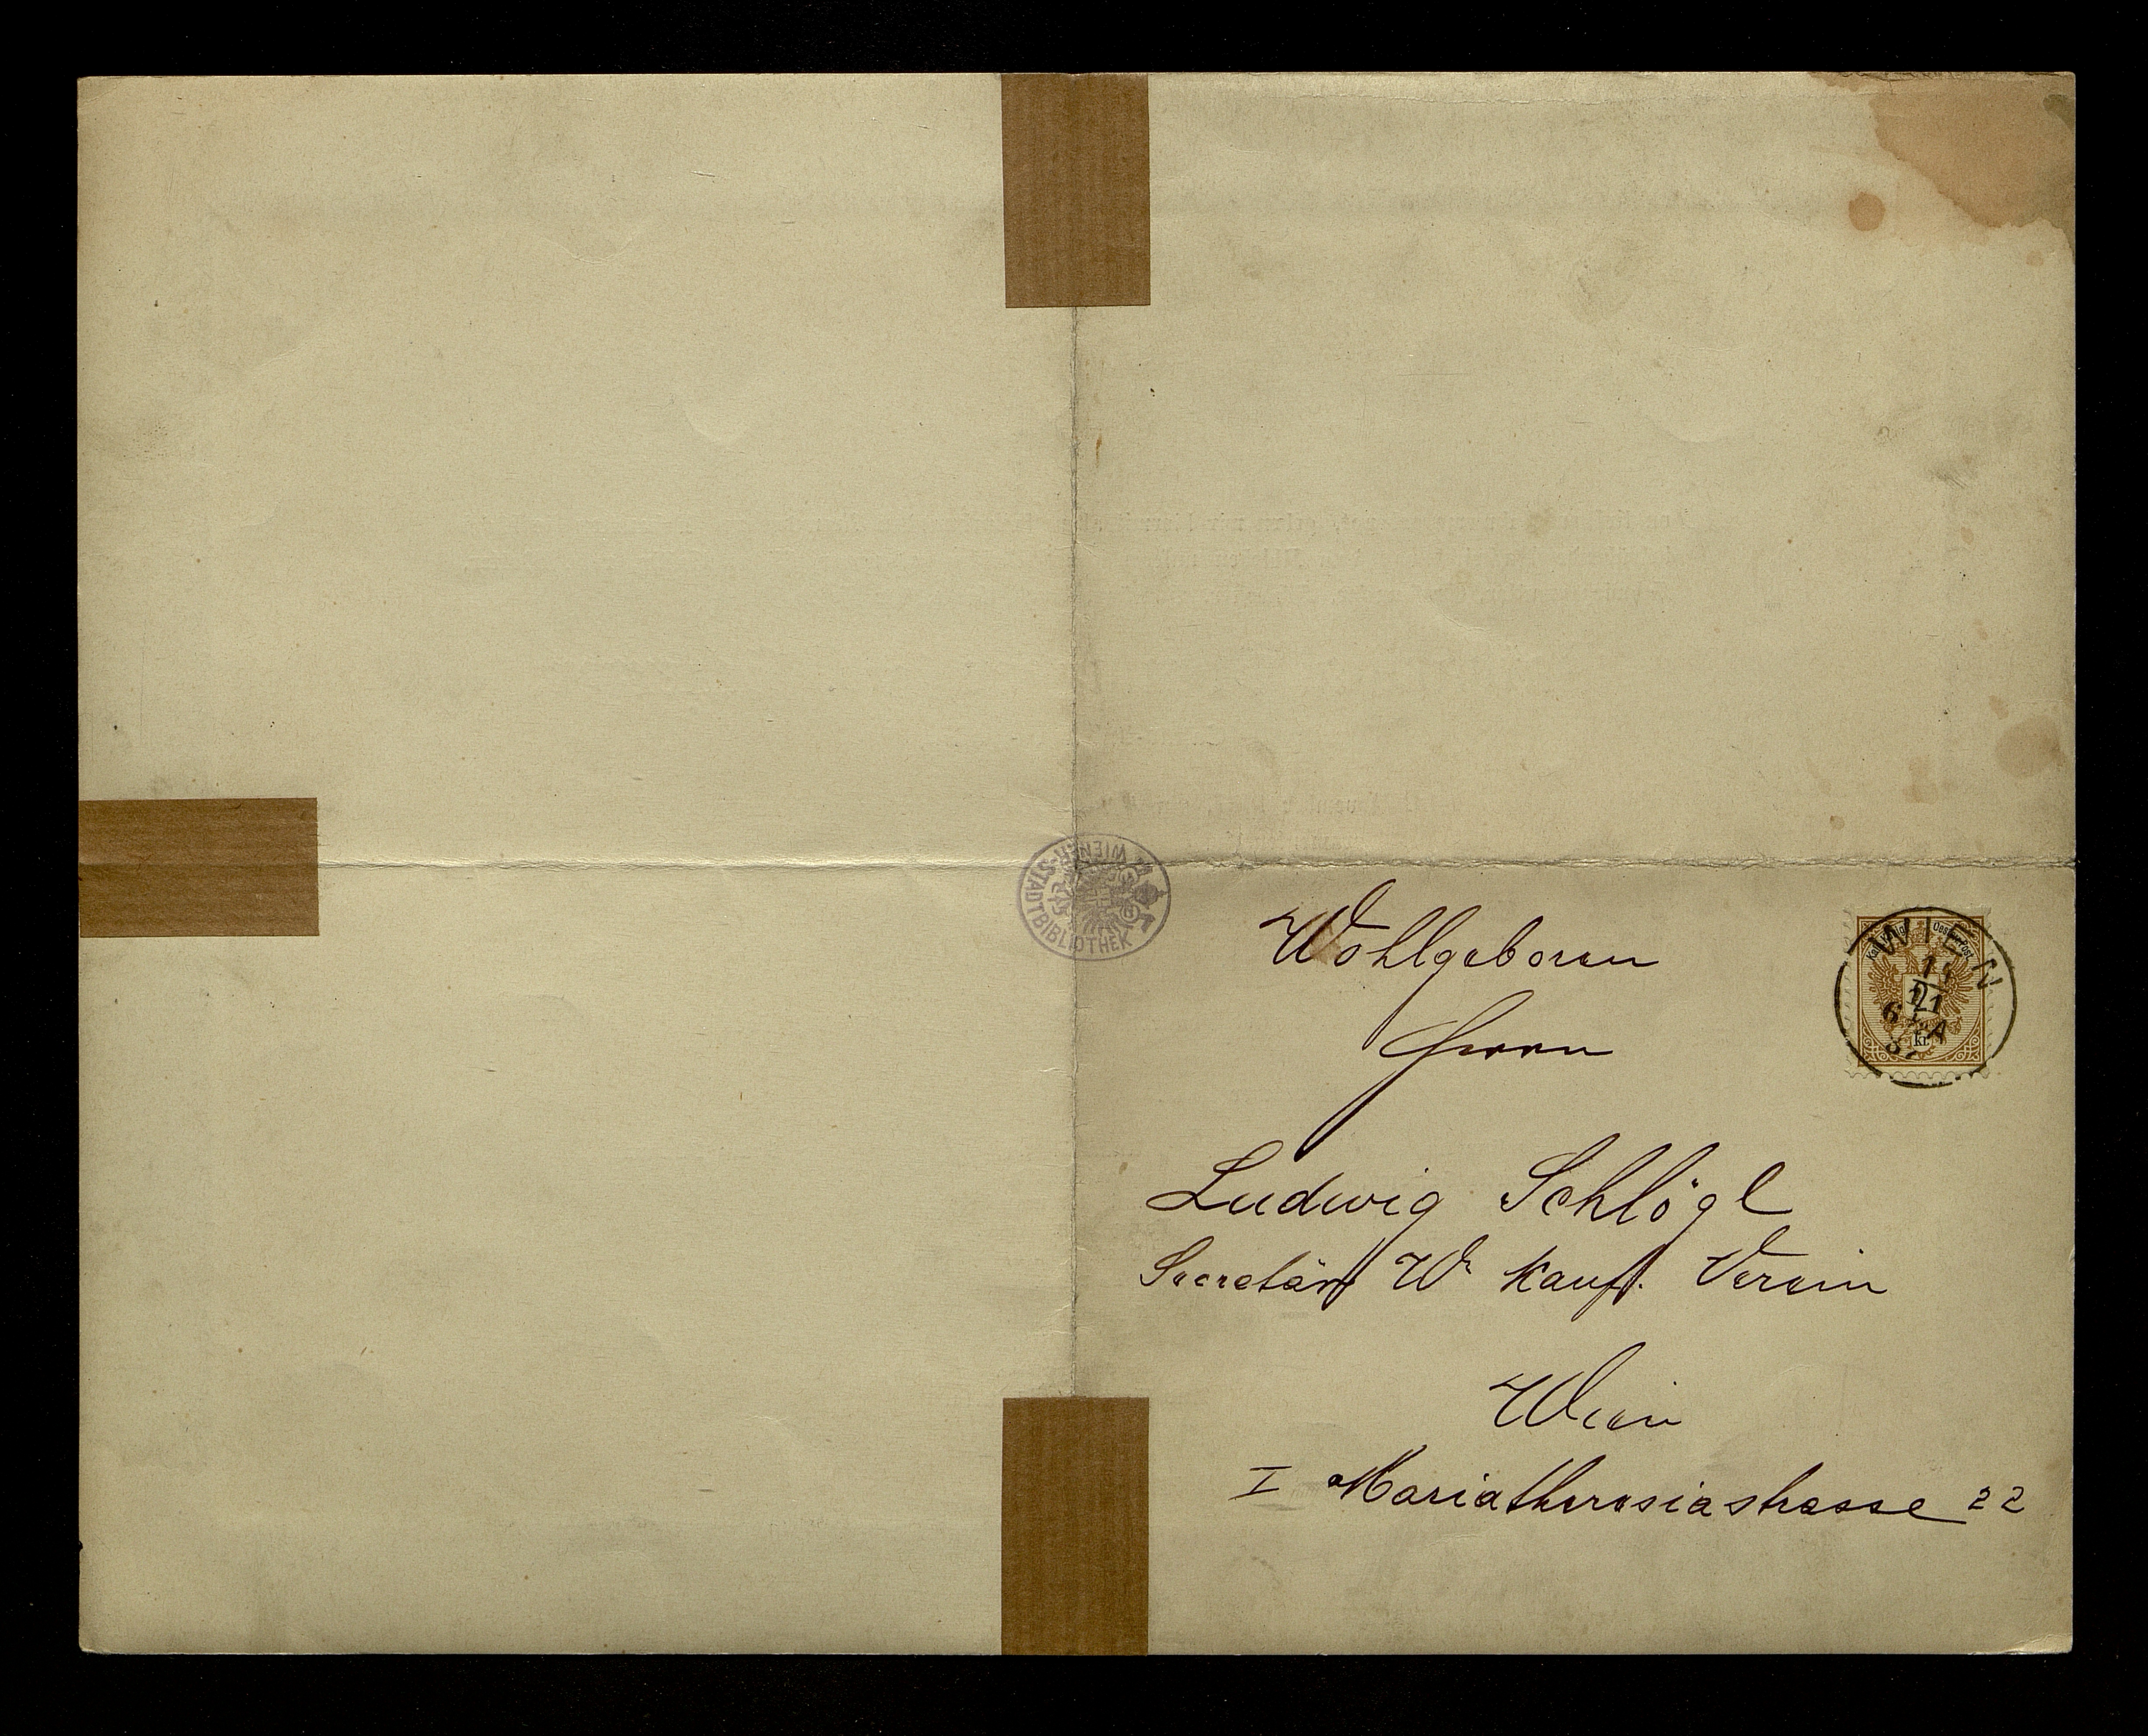 WIENER-STADTBIBLIOTHEK
Wohlgeboren
Herrn
WIEN
kr.
Ludwig Schlögl
Secretär W. Kauf. Verein
Wien
I Mariatheresiastrasse 22